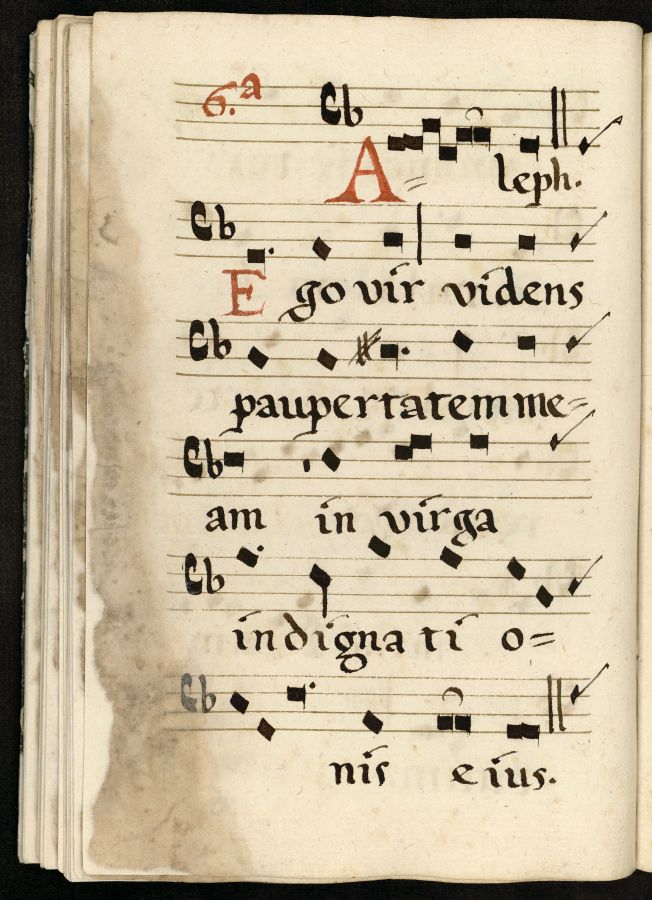 6.ª
A= leph.
Ego vir videns
paupertatem me=
am in virga
indignati o=
nis eius.